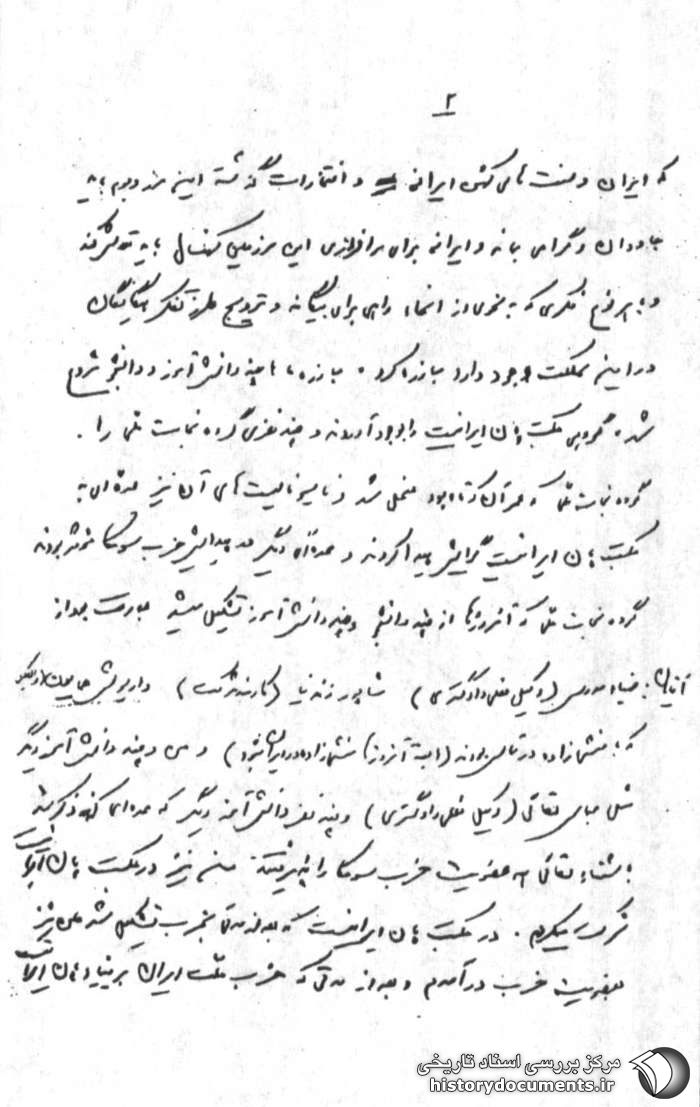 ۲
که ایران و سنت های کهن ایرانی و افتخارات گذشته این مرز و بوم باید
جاودان و گرامی بماند و ایرانی برای سرافرازی این سرزمین کهنسال باید تلاش کند
و با هر نوع فکری که به نحوی از انحاء راهی برای بیگانه و ترویج طرز تفکر بیگانگان
در این مملکت وجود دارد مبارزه کرد. مبارزه ما با چند دانش آموز و دانشجو شروع
شد گروهی مکتب پان ایرانیست را بوجود آوردند و چند نفری گروه نجات ملی را.
گروه نجات ملی که عمر آن کوتاه بود منحل شد و ناسیونالیست های آن نیز عده ای به
مکتب پان ایرانیست گرایش پیدا کردند و عده ای دیگر در پیدایش حزب سومکا مؤثر بودند
گروه نجات ملی که آنروزها از چند دانشجو و چند دانش آموز تشکیل میشد عبارت بود از
آقایان: ضیاء مدرس (وکیل فعلی دادگستری) شاپور زندنیا (کارمند شرکت) داریوش همایون
که با منشی زاده در تماس بودند (البته آنروز منشی زاده در ایران نبود) و من و چند دانش آموز دیگر
مثل عباس لقائی (وکیل فعلی دادگستری) و چند نفر دانش آموز دیگر که عده ای که ذکر شد
باستثناء لقائی به عضویت حزب سومکا را پذیرفتند. من نیز در مکتب پان ایرانیست
شرکت میکردم. در مکتب پان ایرانیست که بعد از مدتی حزب تشکیل شد من نیز
بعضویت حزب درآمدم و بعد از مدتی که حزب ملت ایران بر بنیاد پان ایرانیست
مرکز بررسی اسناد تاریخی
historydocuments.ir